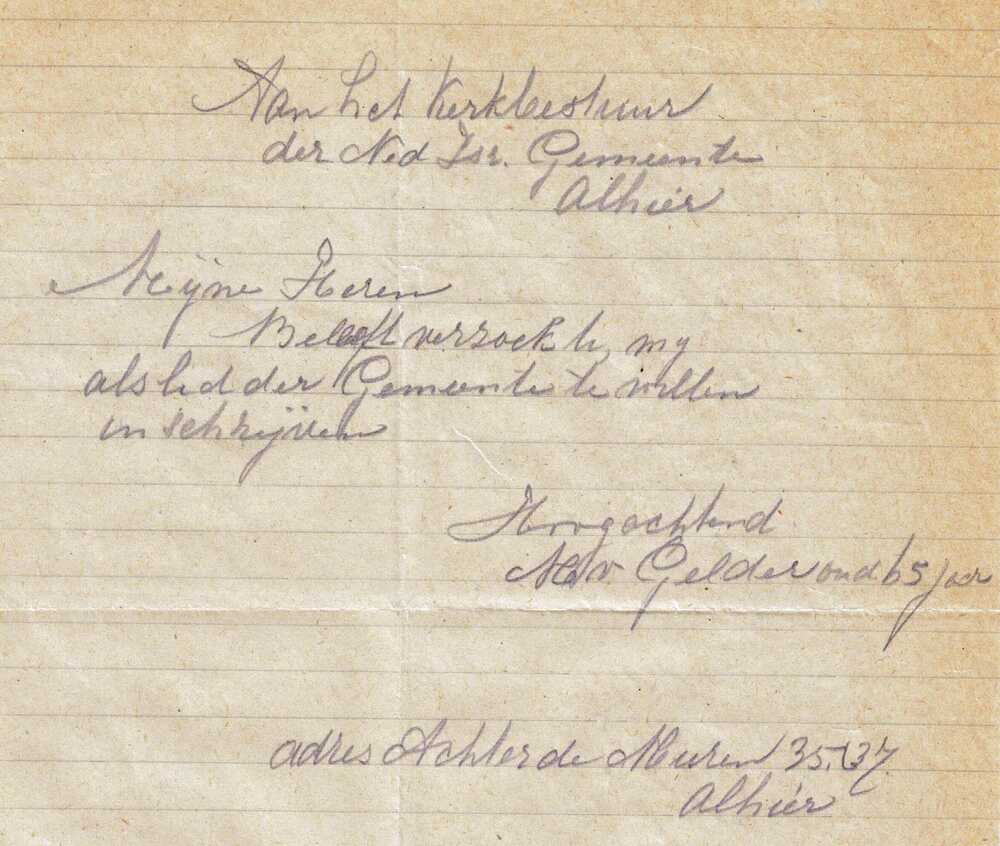 Aan het Kerkbestuur
der Ned Isr. Gemeente
Alhier
Mijne Heren
Beleeft verzoek ik, my
als lid der Gemeente te willen
inschrijven
Hoogachtend
v Gelder oud 65 jaar
adres Achter de Muren 35.37
Alhier